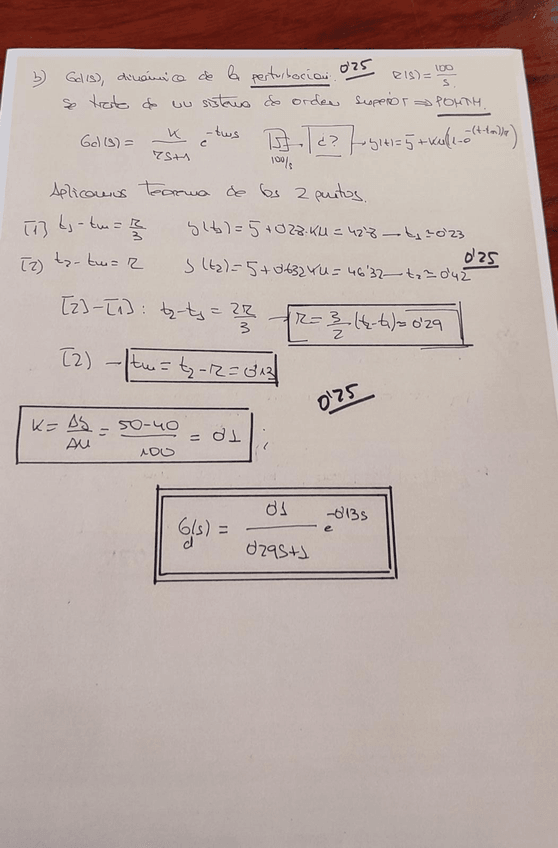 b) Gd(s), dinámica de la perturbación. 0'25 R(s) = 100/s
Se trata de un sistema de orden superior ⇒ POMTM.
Gd(s) = K/(τs+1) e^-tms 100/s d? y(t) = ȳ + Ku(1-e^-(t-tm)/τ)
Aplicamos Teorema de los 2 puntos.
[1] t1 - tm = τ/3 y(t1) = ȳ + 0'28·Ku = 42'8 → t1 ≈ 0'23
[2] t2 - tm = τ y(t2) = ȳ + 0'632Ku = 46'32 → t2 ≈ 0'42 0'25
[2]-[1]: t2-t1 = 2τ/3 → τ = 3/2 (t2-t1) = 0'29
[2] → tm = t2 - τ = 0'13
0'25
K = Δy/Δu = 50-40/100 = 0'1 ;
Gd(s) = 0'1/(0'29s+1) e^-0'13s